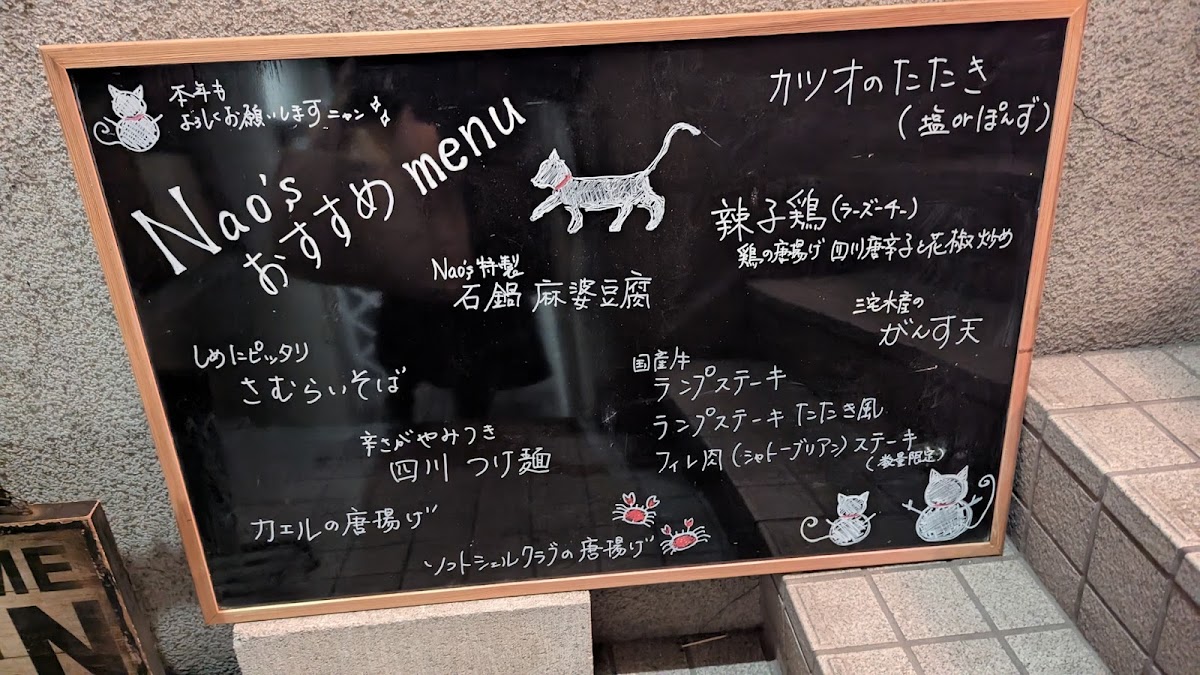 本年も
よろしくお願いします ニャン
Nao's
おすすめ menu
カツオのたたき
(塩orぽんず)
辣子鶏(ラーズーチー)
鶏の唐揚げ 四川唐辛子と花椒炒め
Nao's 特製
石鍋 麻婆豆腐
三宅水産の
がんす天
しめにピッタリ
さむらいそば
国産牛
ランプステーキ
ランプステーキ たたき風
フィレ肉(シャトーブリアン)ステーキ
(数量限定)
辛さがやみつき
四川 つけ麺
カエルの唐揚げ
ソフトシェルクラブの唐揚げ
ME
N